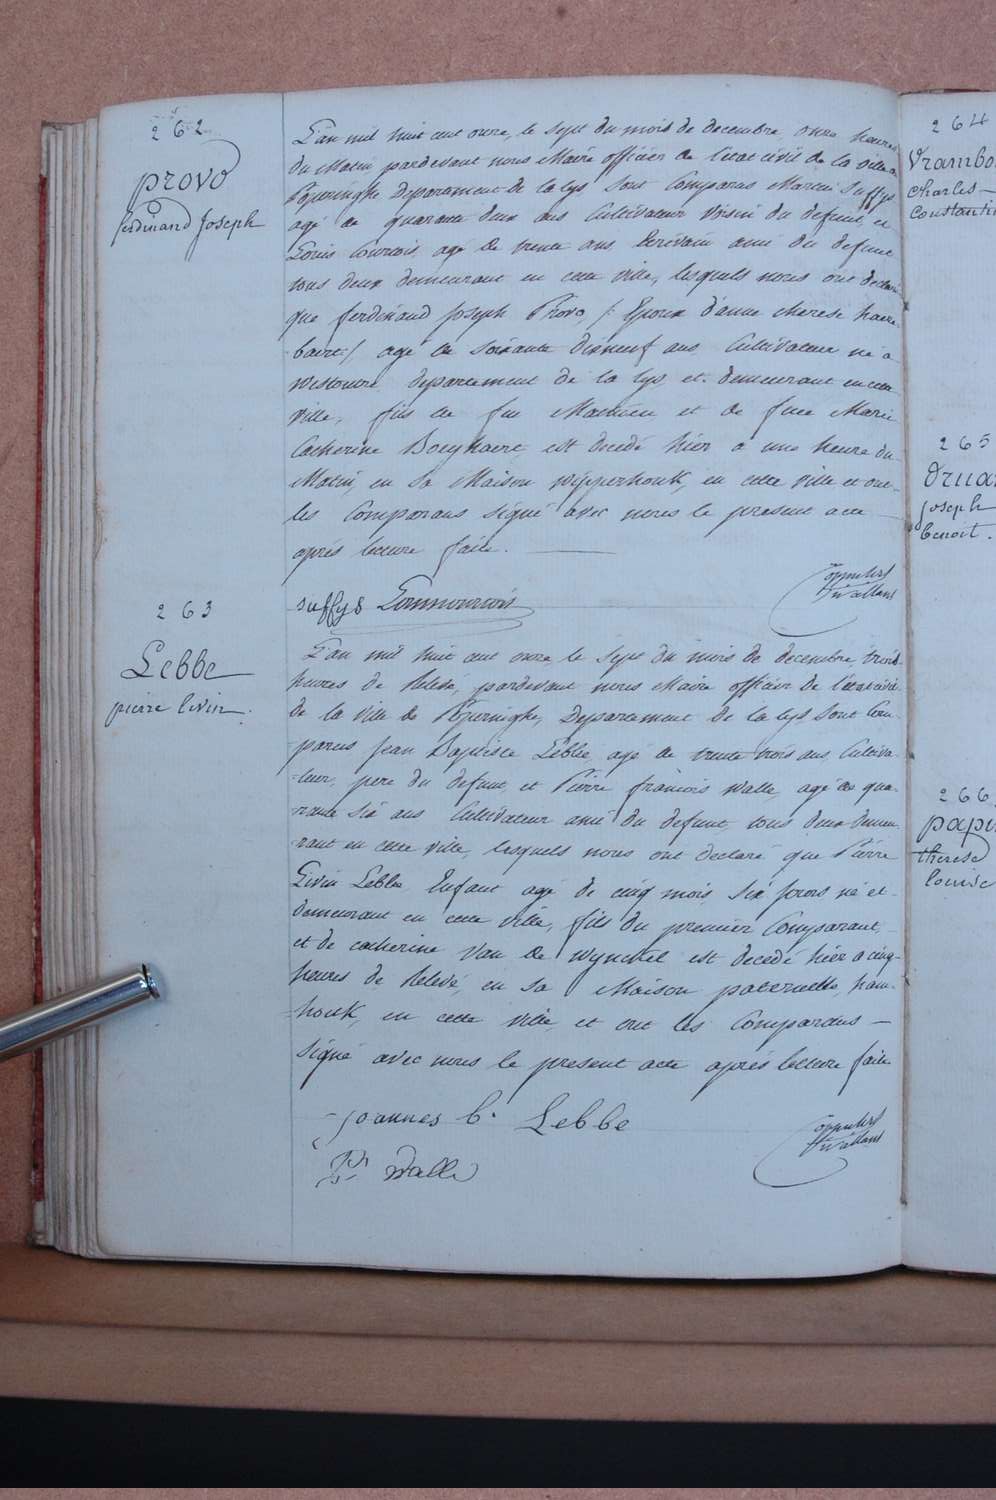 262
provo
ferdinand Joseph
L'an mil huit cent onze, le sept du mois de decembre, onze heures
du Matin pardevant nous Maire officier de l'etat civil de la ville de
Poperinghe Departement de la lys sont Comparus Martin Suffys
agé de quarante deux ans Cultivateur voisin du defunt, et
Louis Courtois, agé de trente ans, Ecrivain ami du defunt
tous deux demeurant en cette ville, lesquels nous ont declaré
que ferdinand Joseph Provo /: Epoux d'anne therese haere-
baert:/ agé de soixante dixneuf ans, Cultivateur né a
Westoutre departement de la lys et demeurant en cette
ville, fils de feu Mathieu et de feue Marie
Catherine Boeyhaert est decedé hier a une heure du
Matin, en sa Maison wipperhouk, en cette ville et ont
les Comparans signé avec nous le present acte
aprés lecture faite.
suffys
263
Lebbe
pierre livin.
L'an mil huit cent onze, le sept du mois de decembre, trois
heures de Relevé, pardevant nous Maire officier de l'etat civil
de la ville de Poperinghe, Departement de la lys sont Com-
parus Jean Baptiste Lebbe, agé de trente trois ans, Cultiva-
-teur, pere du defunt, et Pierre francois Walle, agé de qua-
rante six ans Cultivateur ami du defunt, tous deux demeu-
rant en cette ville, lesquels nous ont declaré que Pierre
Livin Lebbe Enfant agé de cinq mois six jours né et
demeurant en cette ville, fils du premier Comparant,
et de catherine Van de Wynckel est decedé hier a cinq
heures de Relevé, en sa Maison paternelle, ham-
-houk, en cette ville et ont les Comparans
signé avec nous le present acte aprés lecture faite
Joannes b. Lebbe
Walle
264
Vrambo
Charles
Constantin
265
Druar
joseph
benoit.
266
papi
therese
louise